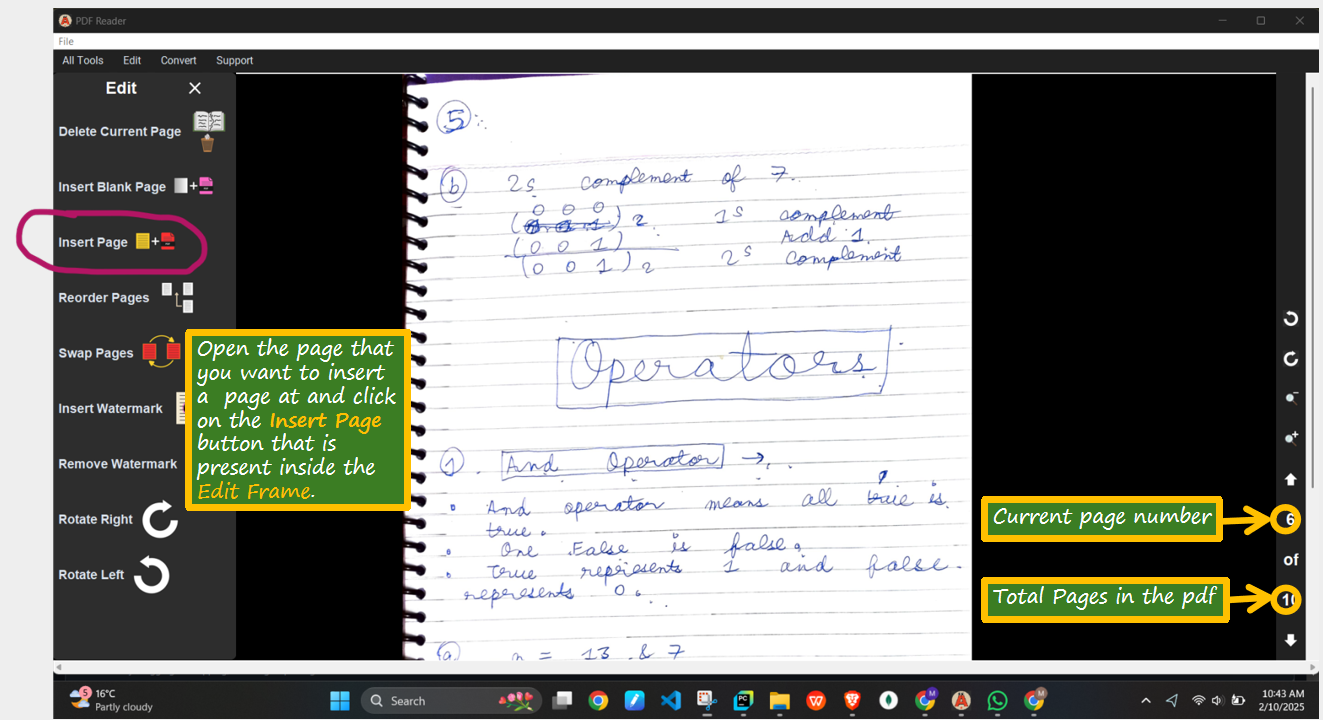 PDF Reader
File
All Tools Edit Convert Support
Edit
Delete Current Page
Insert Blank Page
Insert Page
Reorder Pages
Swap Pages
Insert Watermark
Remove Watermark
Rotate Right
Rotate Left
Open the page that
you want to insert
a page at and click
on the Insert Page
button that is
present inside the
Edit Frame.
5
b 2s complement of 7.
0 0 0
( )2 1s complement
(0 0 1) Add 1.
(0 0 1)2 2s complement
Operators
1. And Operator →
And operator means all true is
true.
One False is false.
True represents 1 and false
represents 0.
a = 13 & 7
Current page number
6
of
Total Pages in the pdf
10
5
16°C
Partly cloudy
Search
10:43 AM
2/10/2025